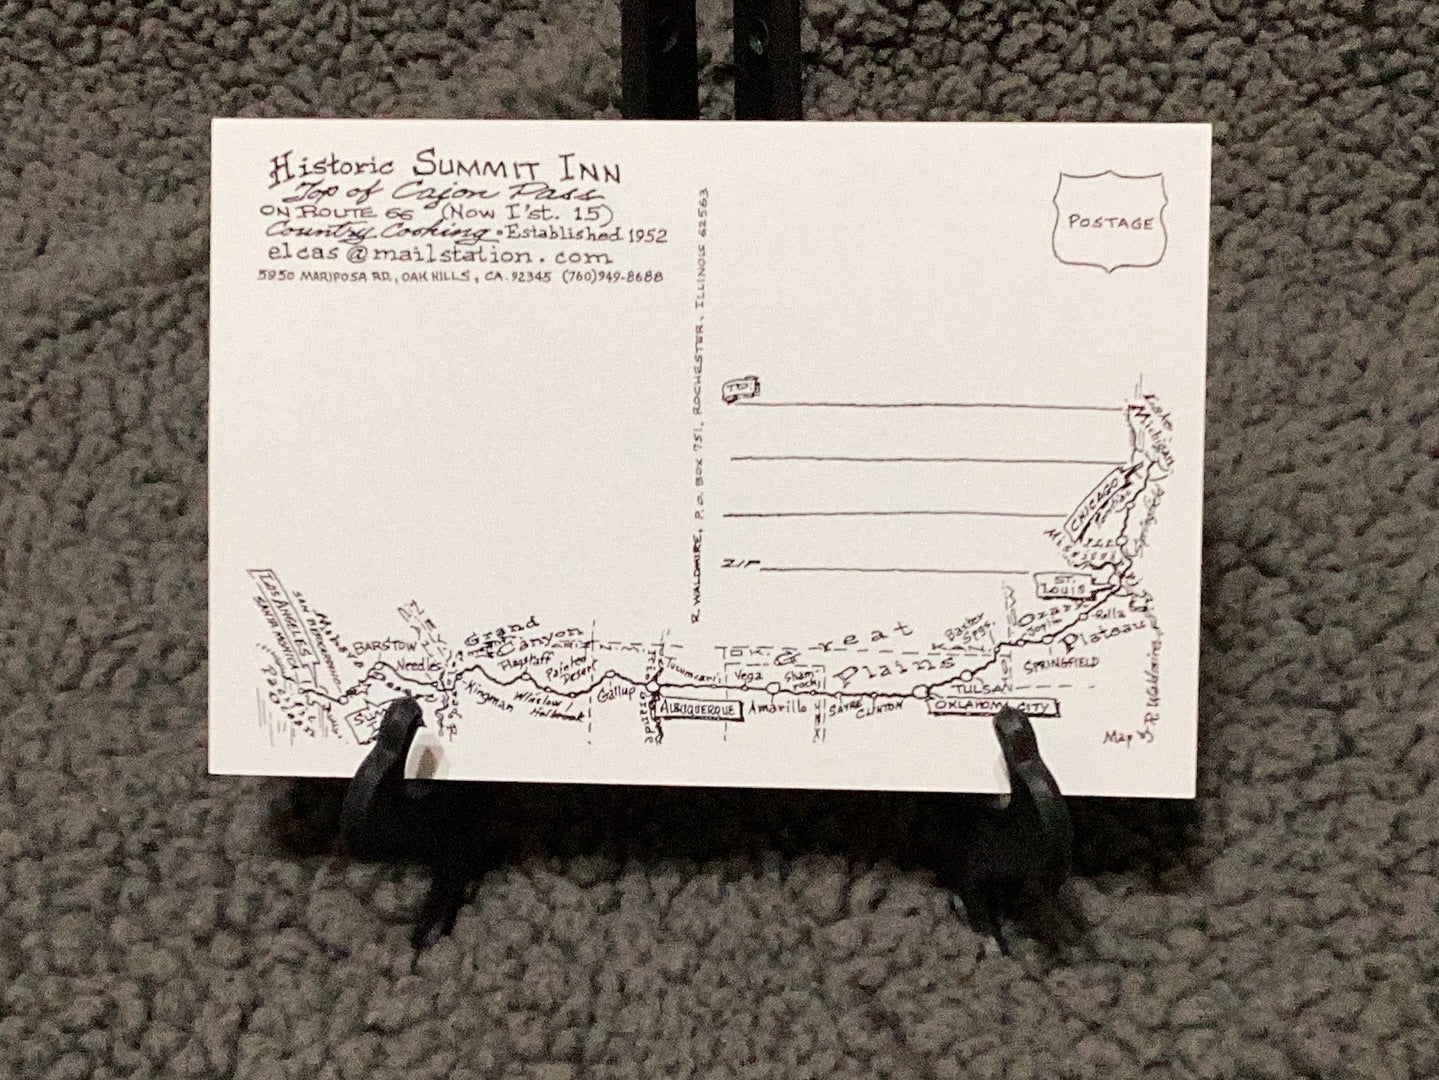 Historic SUMMIT INN
Top of Cajon Pass
ON ROUTE 66 (NOW I'st. 15)
Country Cooking • Established 1952
elcas@mailstation.com
5950 MARIPOSA RD., OAK HILLS, CA. 92345 (760)949-8688
R. WALDMIRE, P.O. BOX 751, ROCHESTER, ILLINOIS 62563
POSTAGE
TO:
ZIP
Michigan
CHICAGO
Pontiac
Springfield
ST. LOUIS
Rolla
Ozark Plateau
Joplin
SPRINGFIELD
Baxter Spgs.
KAN.
TULSA
OKLAHOMA CITY
Great Plains
CLINTON
SAYRE
Shamrock
TEX.
Amarillo
Vega
Tucumcari
ALBUQUERQUE
N.M.
Gallup
Painted Desert
Holbrook
Winslow
Flagstaff
Grand Canyon
ARIZ.
Kingman
Needles
BARSTOW
SAN BERNARDINO
LOS ANGELES
SANTA MONICA
Map by R. Waldmire